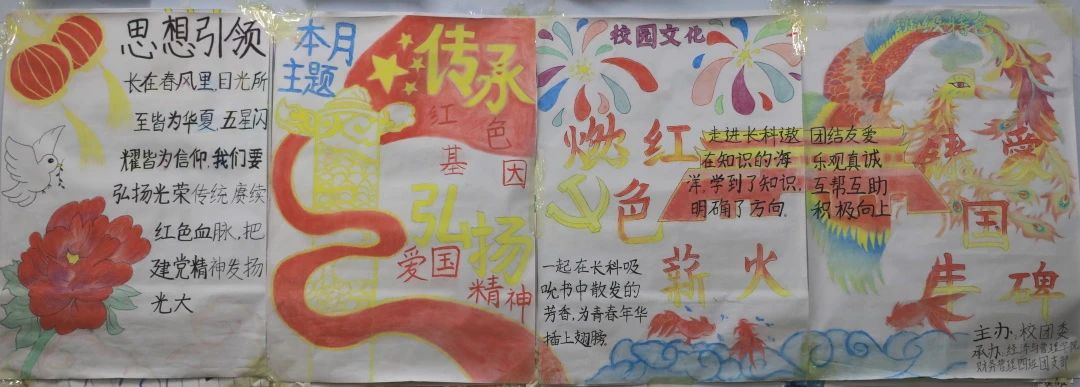 思想引领
长在春风里目光所
至皆为华夏,五星闪
耀皆为信仰.我们要
弘扬光荣传统赓续
红色血脉,把
建党精神发扬
光大
本月
主题
传承
红色
基因
弘扬
爱国
精神
校园文化
燃红
色
薪火
走进长科遨
在知识的海
洋,学到了知识,
明确了方向.
一起在长科吸
吮书中散发的
芳香,为青春年华
插上翅膀.
团结友爱
乐观真诚
互帮互助
积极向上
爱
国
碑
主办:校团委
承办:经济与管理学院
财务管理四班团支部